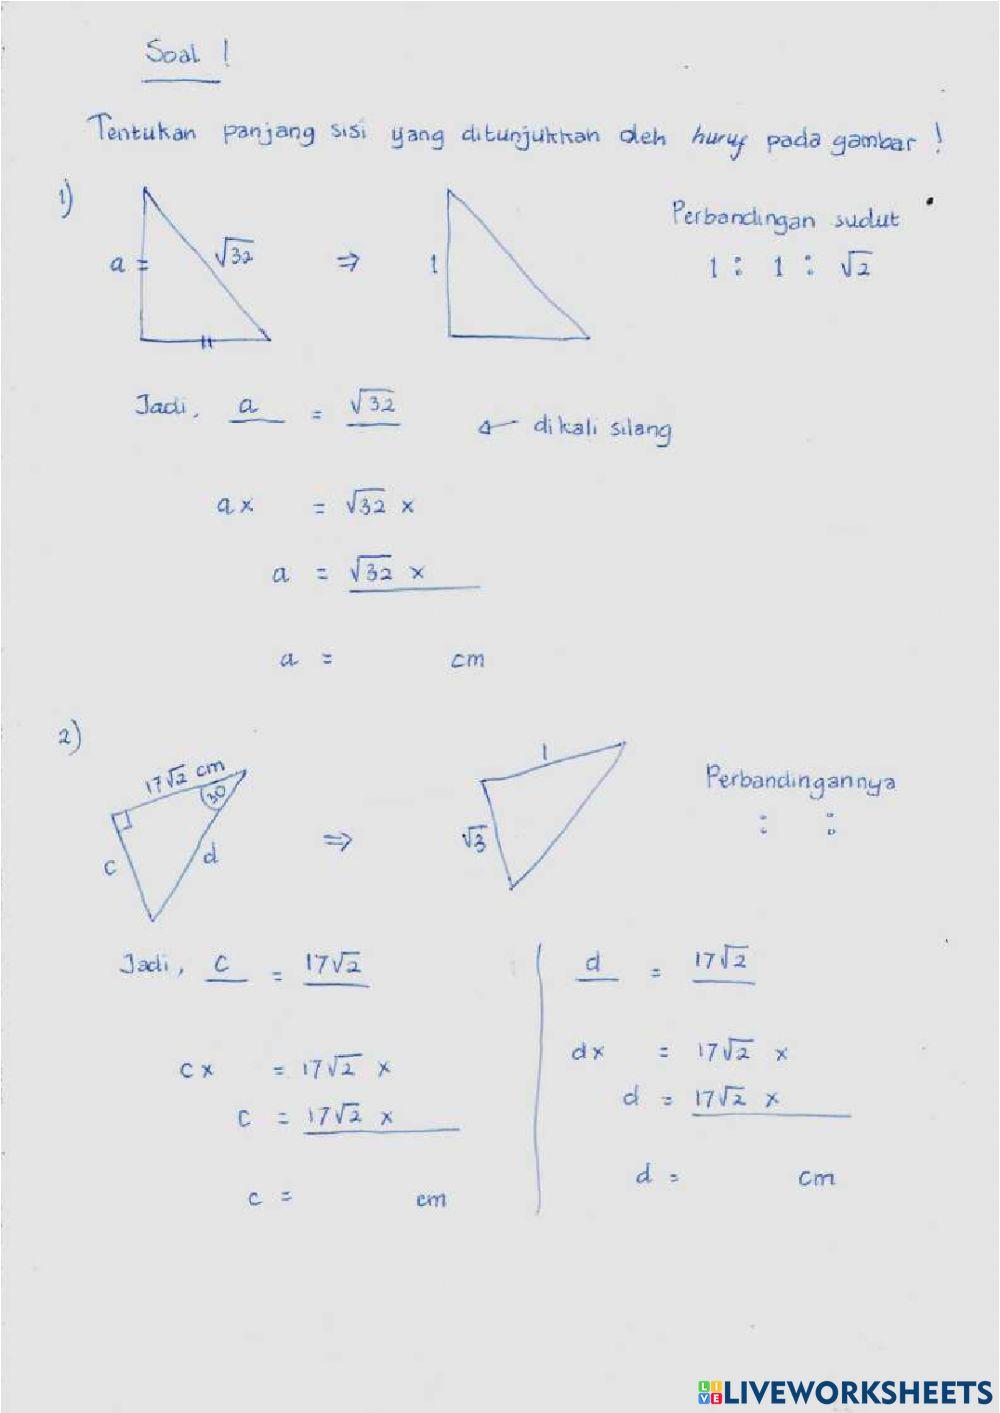 Soal !
Tentukan panjang sisi yang ditunjukkan oleh huruf pada gambar !
1)
a
√32
⇒
1
Perbandingan sudut
1 : 1 : √2
Jadi, a = √32
dikali silang
a x = √32 x
a = √32 x
a = cm
2)
17√2 cm
30
c
d
⇒
1
√3
Perbandingannya
: :
Jadi, c = 17√2
c x = 17√2 x
c = 17√2 x
c = cm
d = 17√2
d x = 17√2 x
d = 17√2 x
d = cm
LIVE LIVEWORKSHEETS